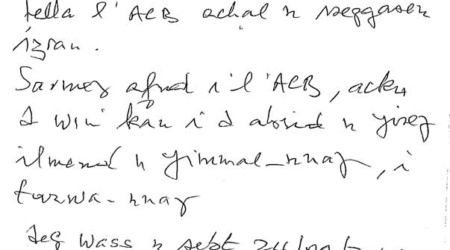 tella l'ACB achal n iseggasen
izran.
Sarmeɣ afud i l'ACB, acku
d win kan i d abrid n yiseɣ
ilmend n yimmal-nnaɣ, i
tarwa-nnaɣ
Seg wass n sebt